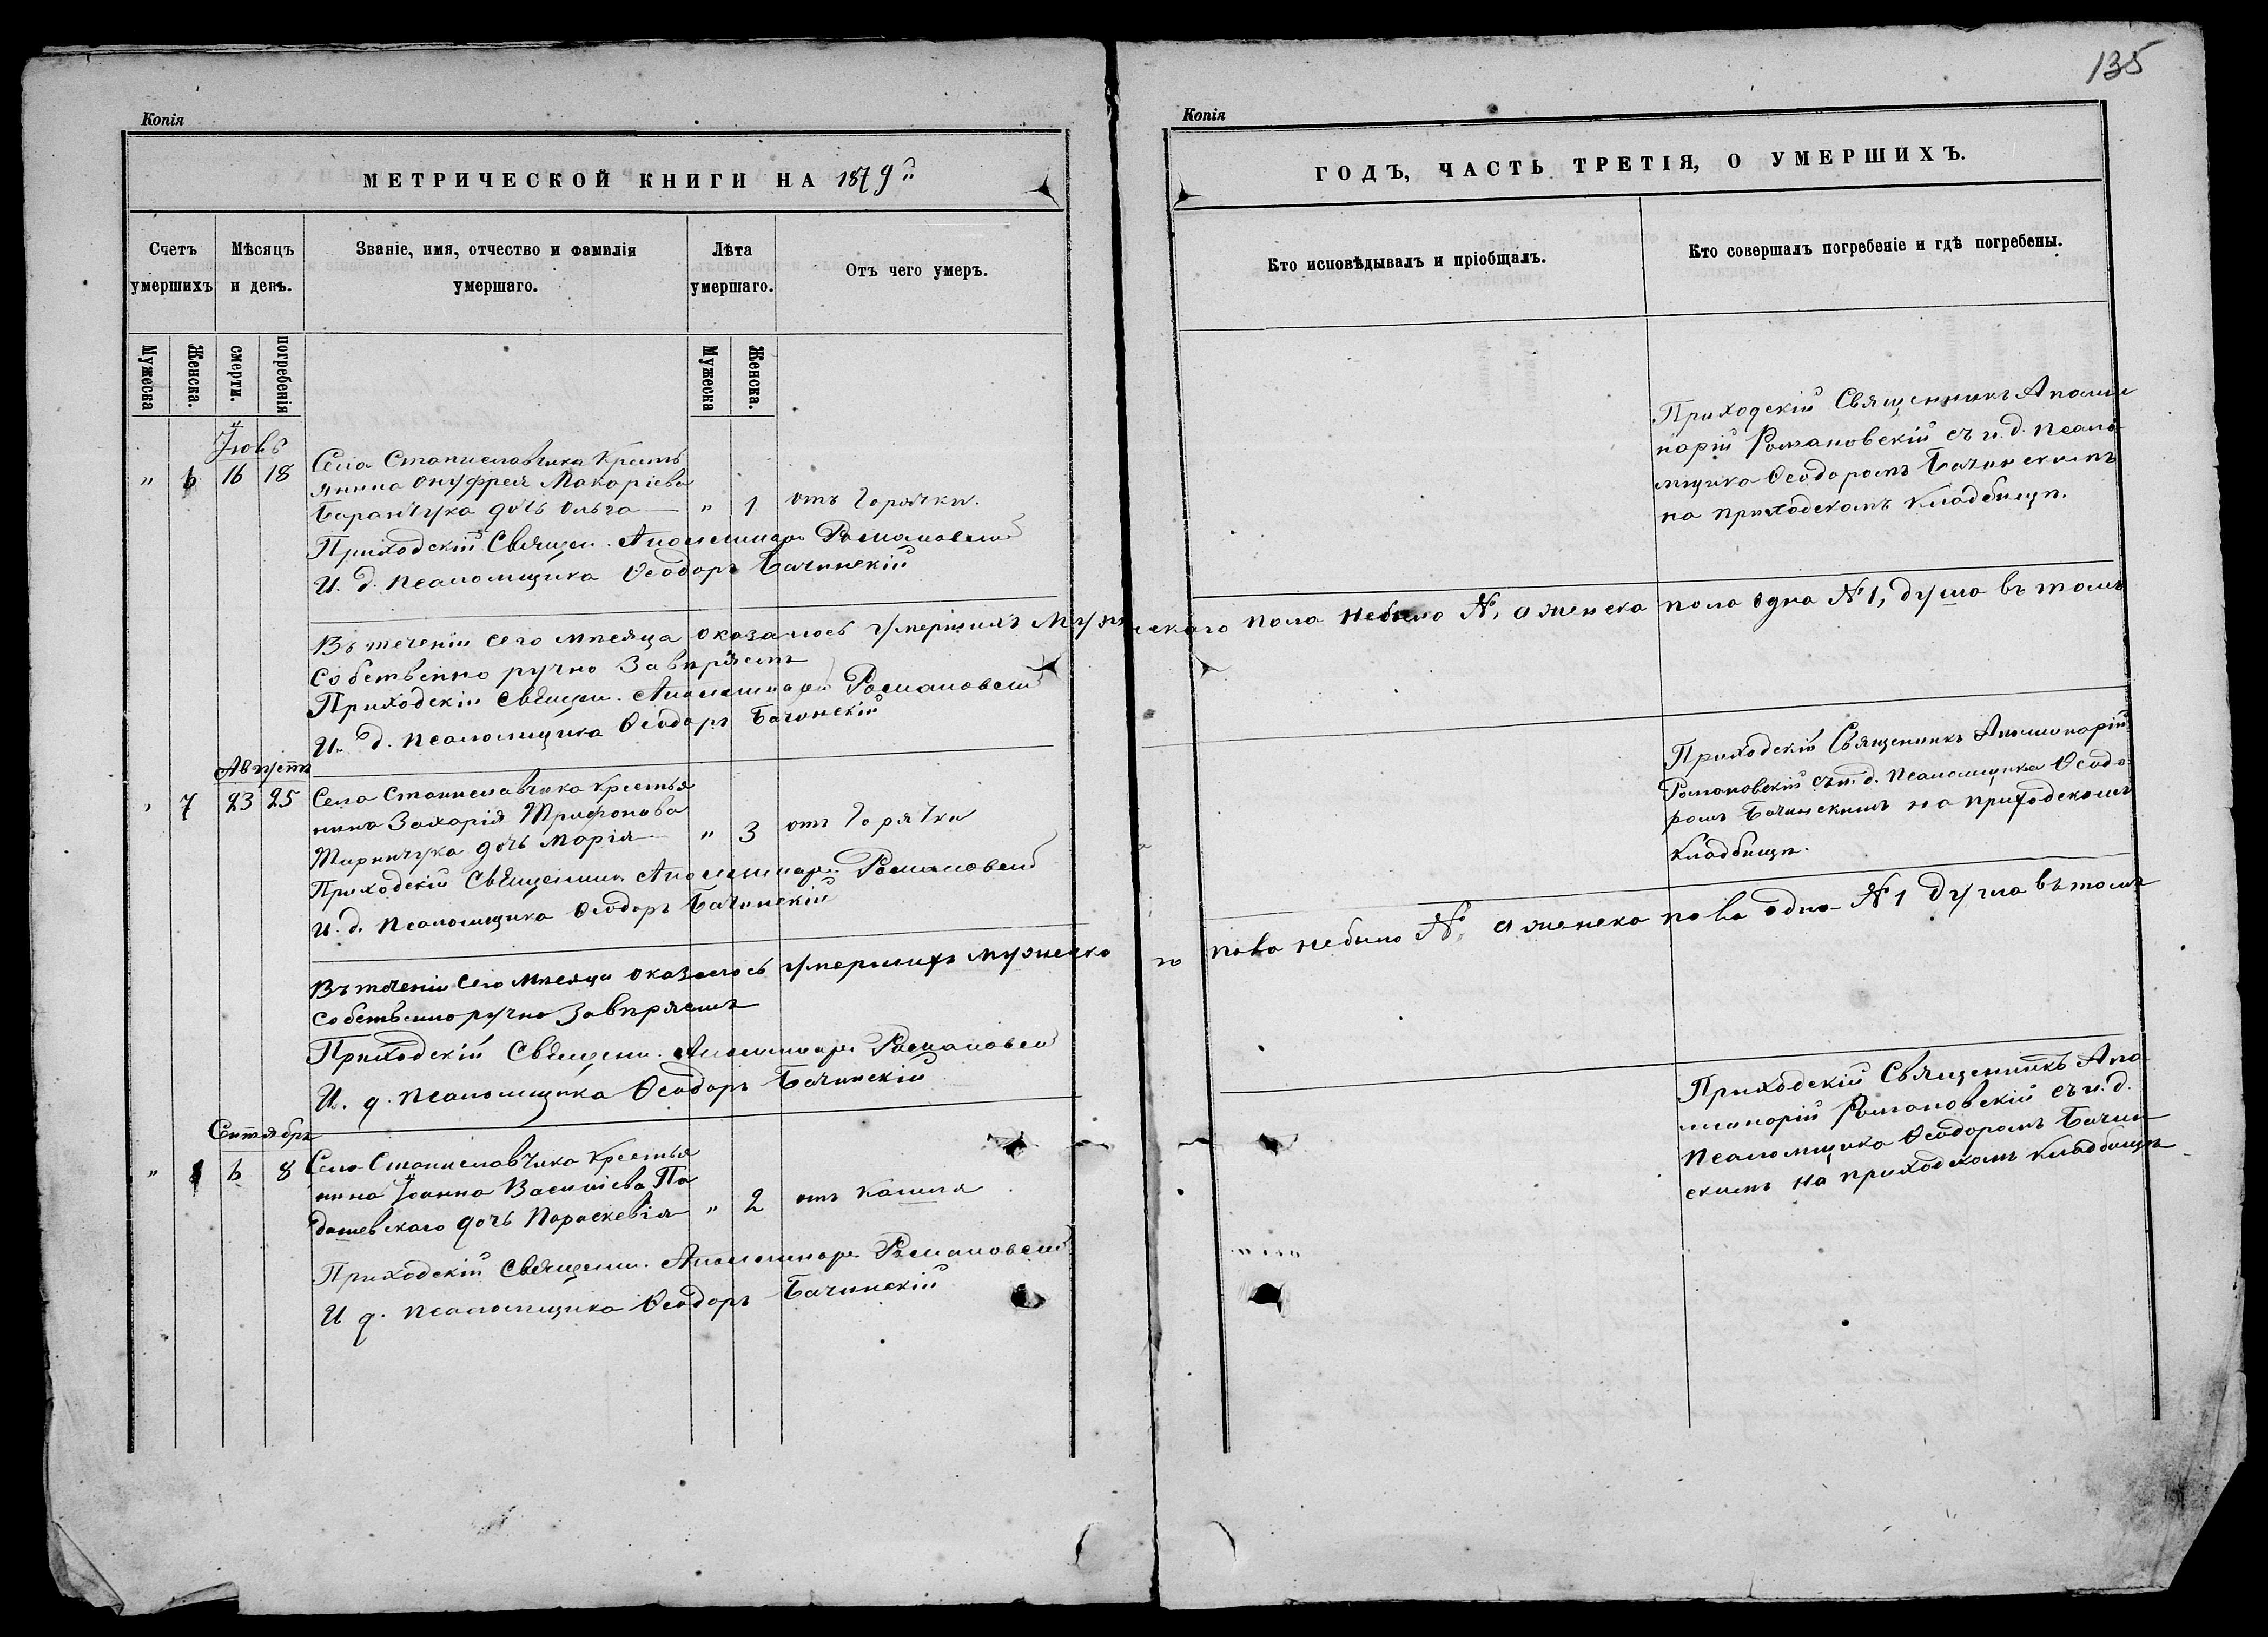 135
Копія
МЕТРИЧЕСКОЙ КНИГИ НА 1879й
Счетъ умершихъ
Мѣсяцъ и день.
Званіе, имя, отчество и фамилія умершаго.
Лѣта умершаго.
Отъ чего умеръ.
Мужеска
Женска.
смерти.
погребенія
Мужеска
Женска.
Іюль
" 6 16 18 Села Станиславчика Кресть
янина Онуфрея Макаріева
Баранчука дочь Ольга — " 1 отъ Горячки.
Приходскій Священ. Аполлинарій Романовскій
И. д. псаломщика Ѳеодоръ Бачинскій
Въ теченіи сего мѣсяца оказалось умершихъ Мужескаго пола небыло №, а женска пола одна №1, душа въ томъ
собственно ручно Завѣряемъ
Приходскій Священ. Аполлинарій Романовскій
И. д. псаломщика Ѳеодоръ Бачинскій
Августъ
" 7 23 25 Села Станиславчика Крестья
нина Захарія Трифонова
дочь Марія — " 3 отъ Горячки
Приходскій Священник Аполлинарій Романовскій
И. д. псаломщика Ѳеодоръ Бачинскій
Въ теченіи сего мѣсяца оказалось умершихъ мужеско
го пола небыло №, а женска пола одна №1 душа въ томъ
собственноручно Завѣряемъ
Приходскій Священ. Аполлинарій Романовскій
И. д. псаломщика Ѳеодоръ Бачинскій
Сентябрь
" 8 6 8 Села Станиславчика Крестья
нина Іоанна Василіева По
дашевскаго дочь Параскевія " 2 отъ Кашля
Приходскій Священ. Аполлинарій Романовскій
И д. псаломщика Ѳеодоръ Бачинскій
Копія
ГОДЪ, ЧАСТЬ ТРЕТІЯ, О УМЕРШИХЪ.
Кто исповѣдывалъ и пріобщалъ.
Кто совершалъ погребеніе и гдѣ погребены.
Приходскій Священникъ Аполли
нарій Романовскій съ и. д. псало
мщика Ѳеодоромъ Бачинскимъ
на приходскомъ кладбищѣ.
Приходскій Священникъ Аполинарій
Романовскій съ и. д. псаломщика Ѳеодо
ромъ Бачинскимъ на приходскомъ
кладбищѣ.
Приходскій Священникъ Апо
линарій Романовскій съ и. д.
псаломщика Ѳеодоромъ Бачин
скимъ на приходскомъ кладбищѣ